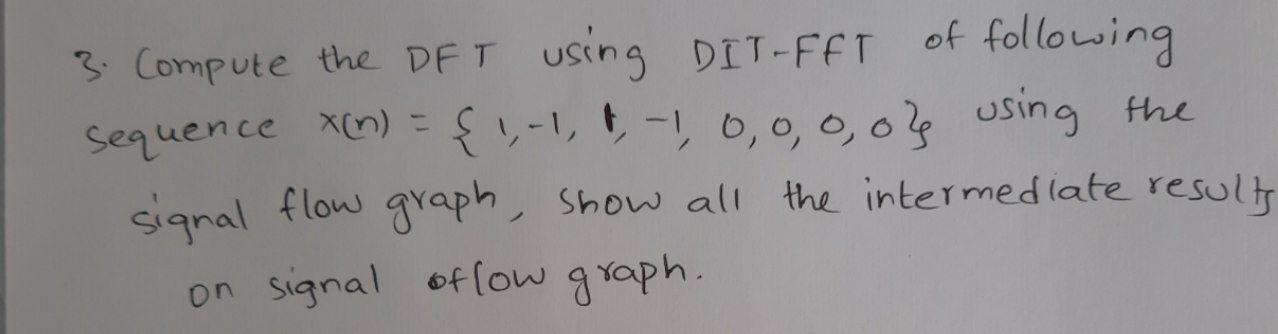 3. Compute the DFT using DIT-FFT of following
sequence x(n) = {1,-1, 1, -1, 0,0,0,0} using the
signal flow graph, show all the intermediate results
on signal flow graph.